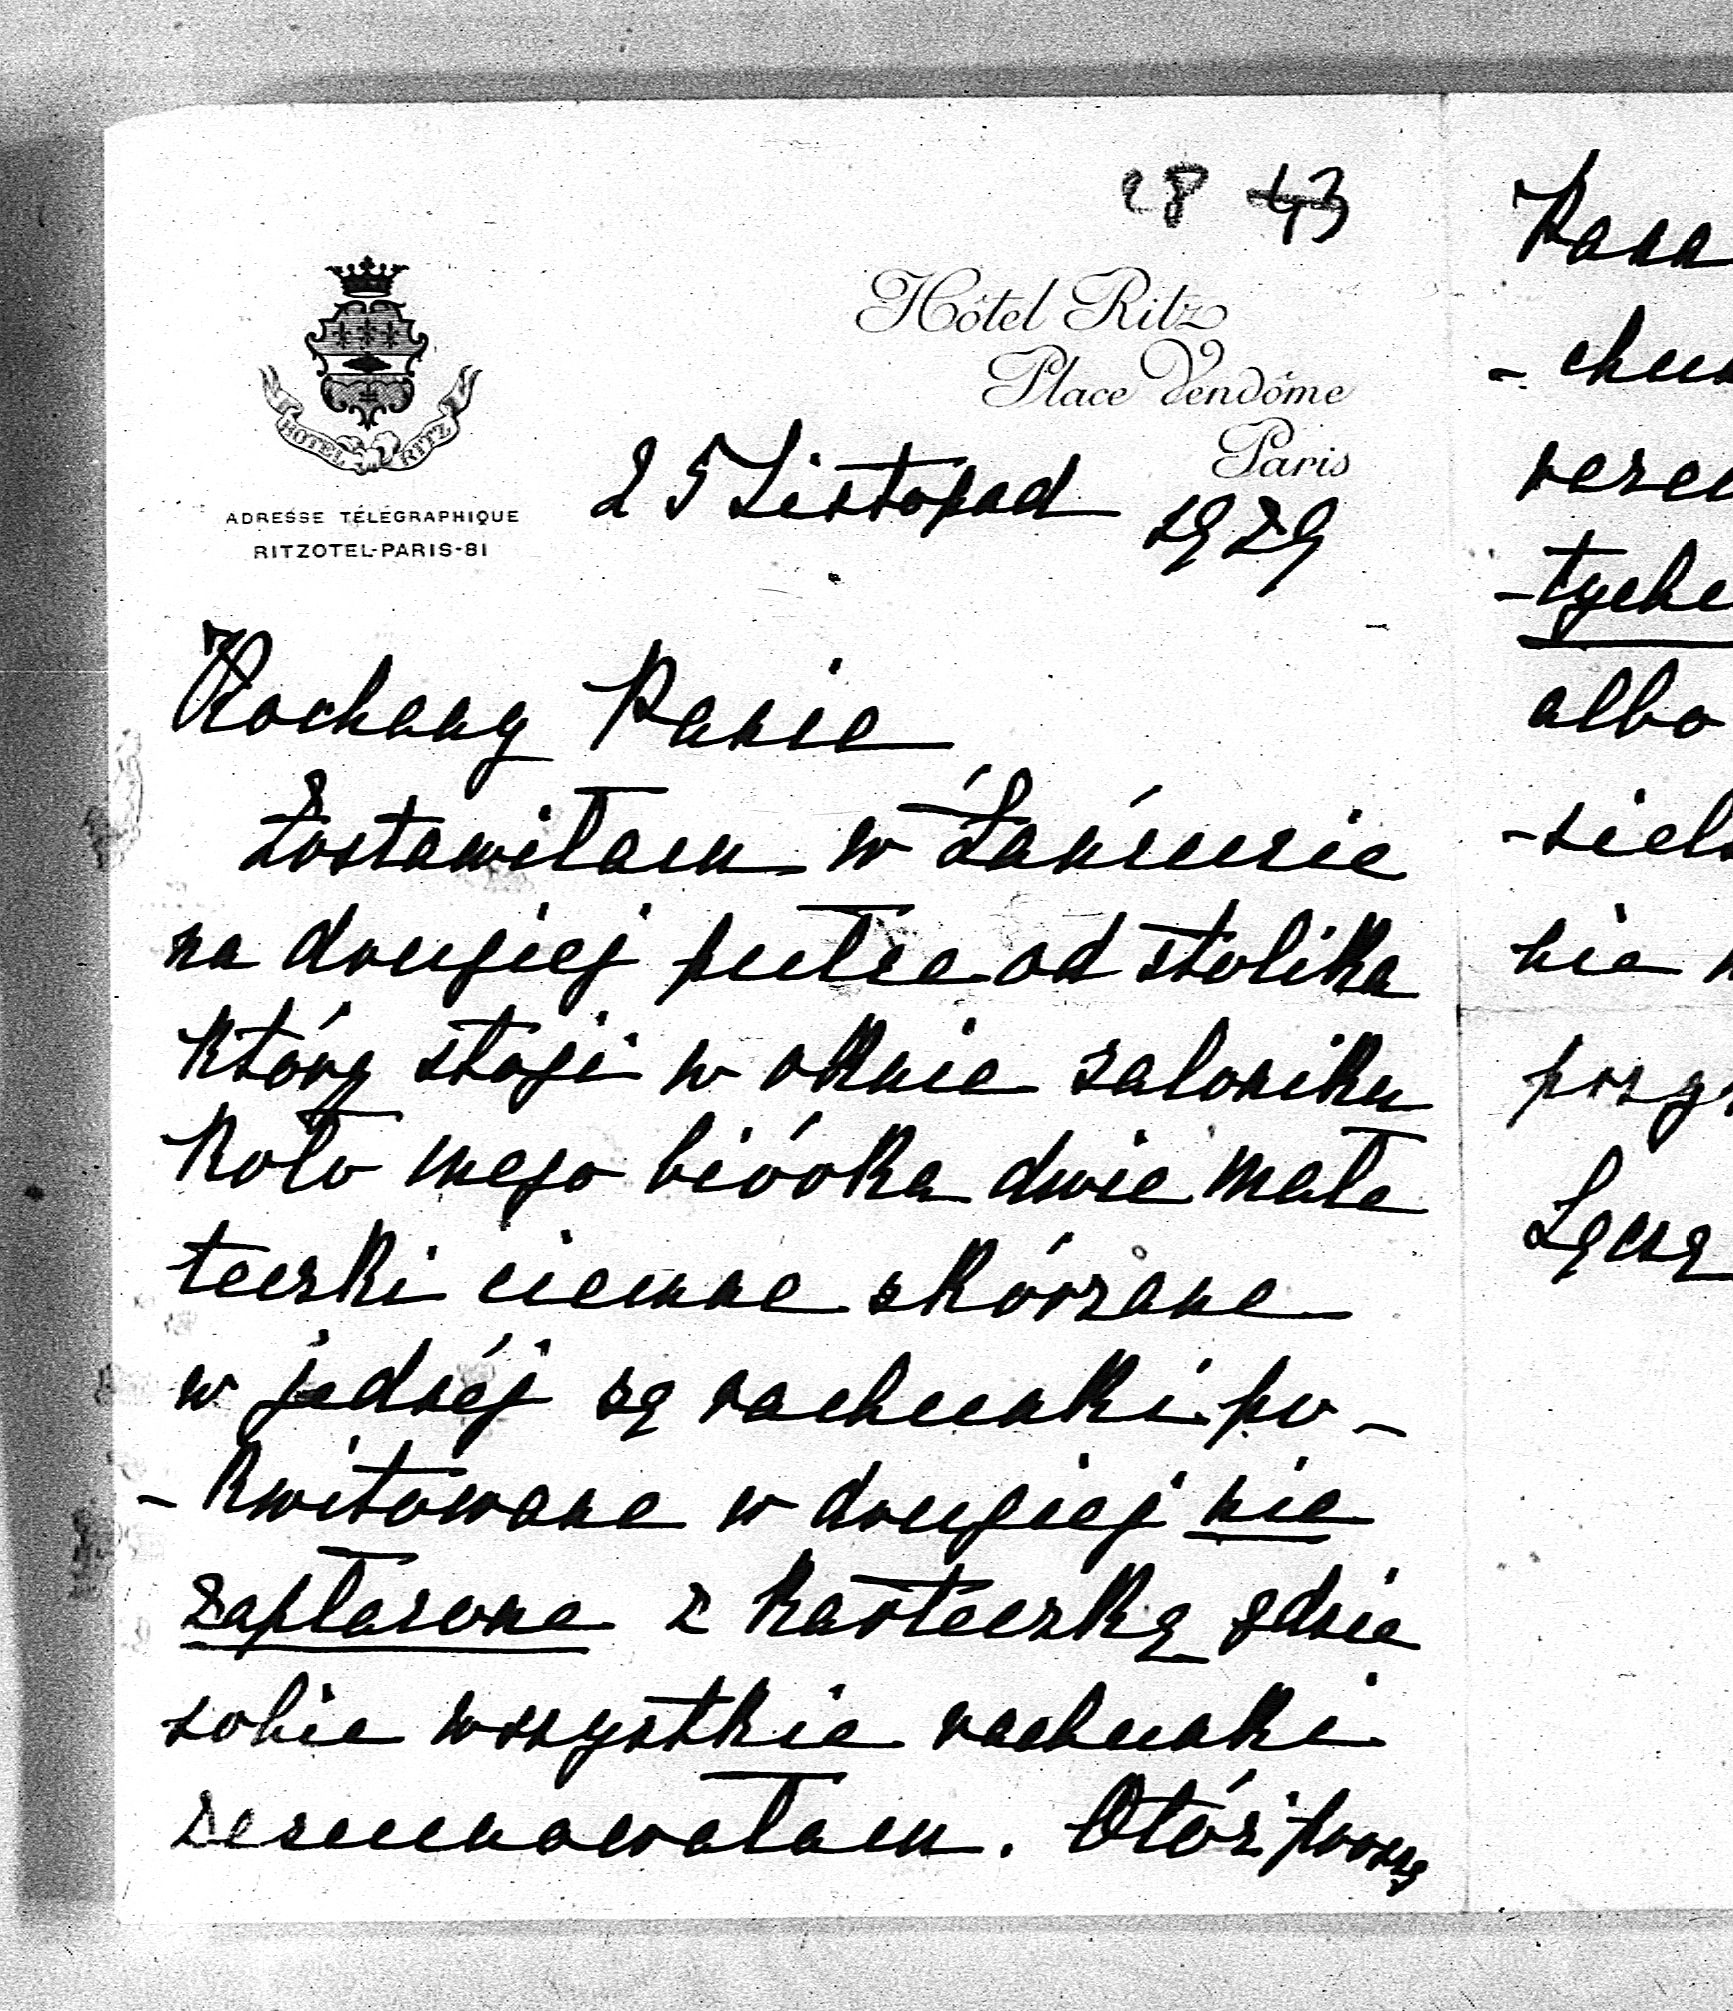 28 43
Hôtel Ritz
Place Vendôme
Paris
HOTEL RITZ
ADRESSE TÉLÉGRAPHIQUE
RITZOTEL-PARIS-81
25 Listopad 1929
Kochany Panie
Zostawiłam w Łańcucie
na drugiej pułce od stolika
który stoji w oknie saloniku
koło mego biórka dwie małe
teczki ciemne skórzane
w jednéj są rachunki po-
-kwitowane w drugiej nie
zapłacone z karteczką gdzie
sobie wszystkie rachunki
zesumowałam. Otóż proszę
Pana
- chu
tyche
albo
-siels
nie
przy
Łączę